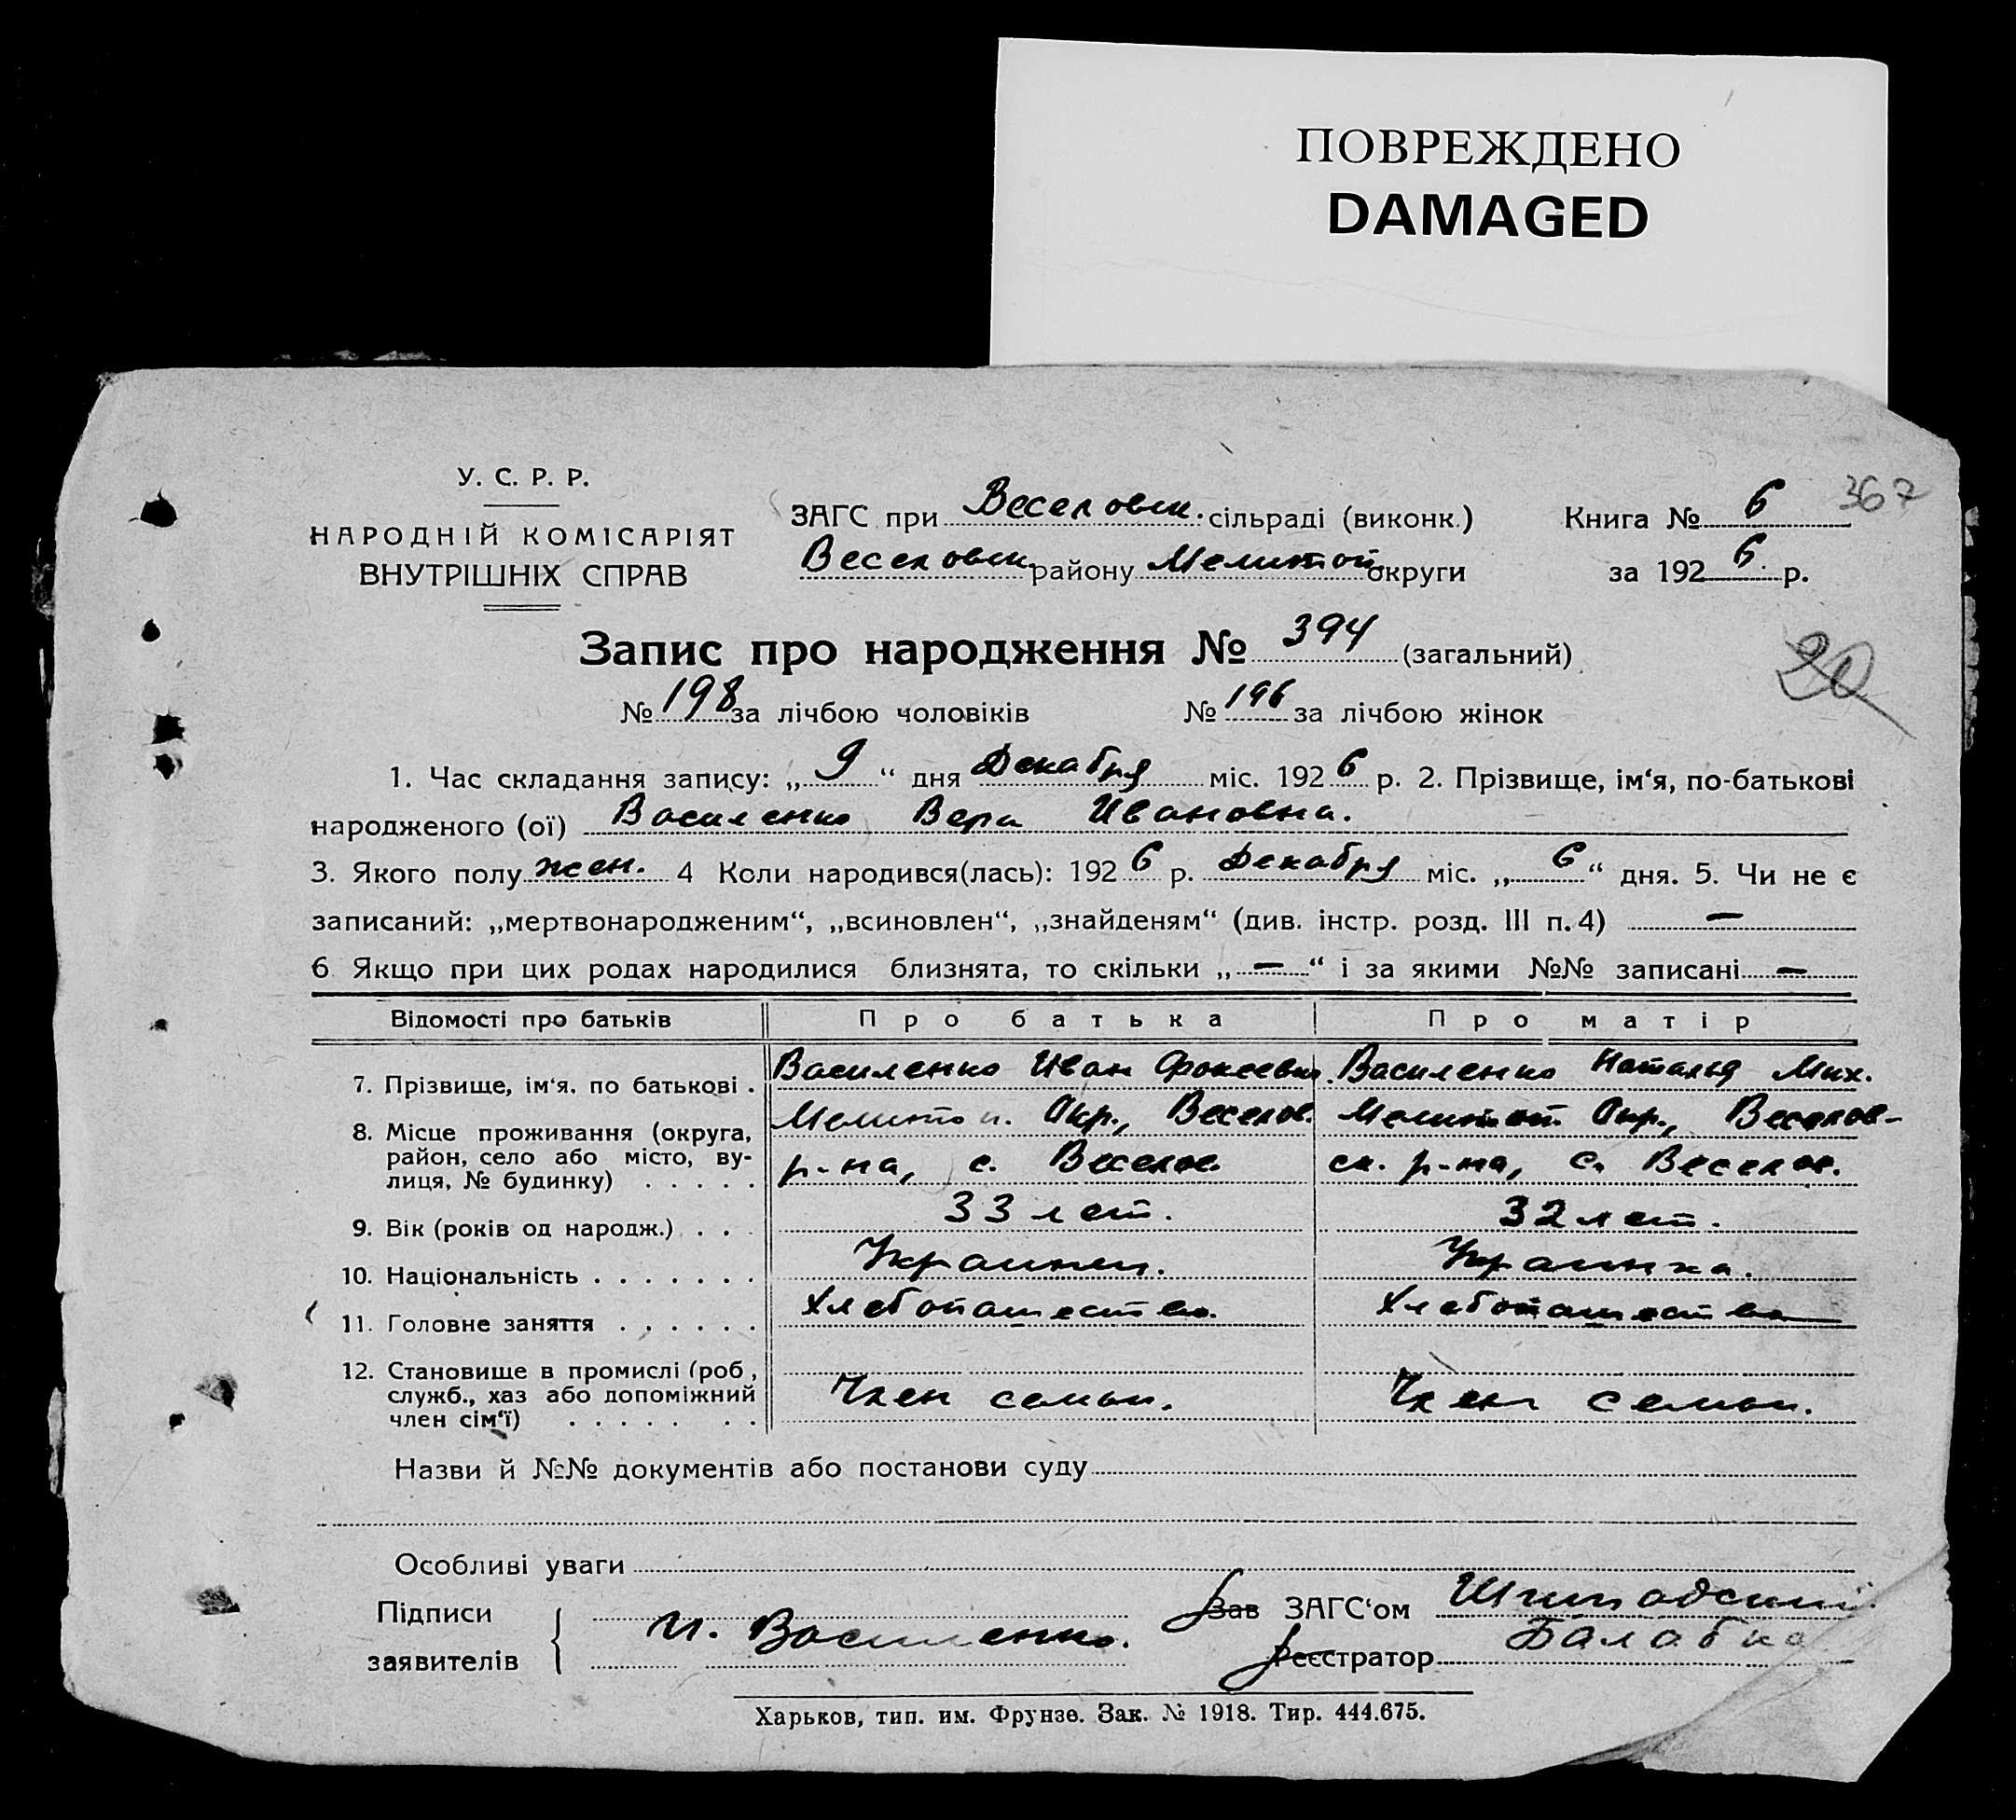 ПОВРЕЖДЕНО
DAMAGED
367
У. С. Р. Р.
НАРОДНІЙ КОМІСАРІЯТ
ВНУТРІШНІХ СПРАВ
ЗАГС при Веселовск. сільраді (виконк.)
Веселовск. району Мелитоп округи
Книга № 6
за 1926 р.
Запис про народження № 394 (загальний)
20
№ 198 за лічбою чоловіків № 196 за лічбою жінок
1. Час складання запису: „9“ дня Декабря міс. 1926 р. 2. Прізвище, ім‘я, по-батькові
народженого (ої) Василенко Вера Ивановна.
3. Якого полу жен. 4 Коли народився(лась): 1926 р. Декабря міс. „6“ дня. 5. Чи не є
записаний: „мертвонародженим“, „всиновлен“, „знайденям“ (див. інстр. розд. III п. 4) —
6. Якщо при цих родах народилися близнята, то скільки „—“ і за якими №№ записані —
Відомості про батьків Про батька Про матір
7. Прізвище, ім‘я, по батькові . Василенко Иван Фокеевич. Василенко Наталья Мих.
8. Місце проживання (округа, Мелитоп. Окр., Веселов. Мелитоп Окр., Веселов-
район, село або місто, ву- р-на, с. Веселое ск. р-на, с. Веселое.
лиця, № будинку) . . . . .
9. Вік (років од народж.) . . . 33 лет. 32 лет.
10. Національність . . . . . . . Украинец. Украинка.
11. Головне заняття . . . . . . Хлебопашество. Хлебопашество
12. Становище в промислі (роб,
служб., хаз або допоміжний Член семьи. Член семьи.
член сім‘ї) . . . . . . .
Назви й №№ документів або постанови суду
Особливі уваги
Підписи
заявителів
И. Василенко.
Зав ЗАГС‘ом
Реєстратор Балабка
Харьков, тип. им. Фрунзе. Зак. № 1918. Тир. 444.675.